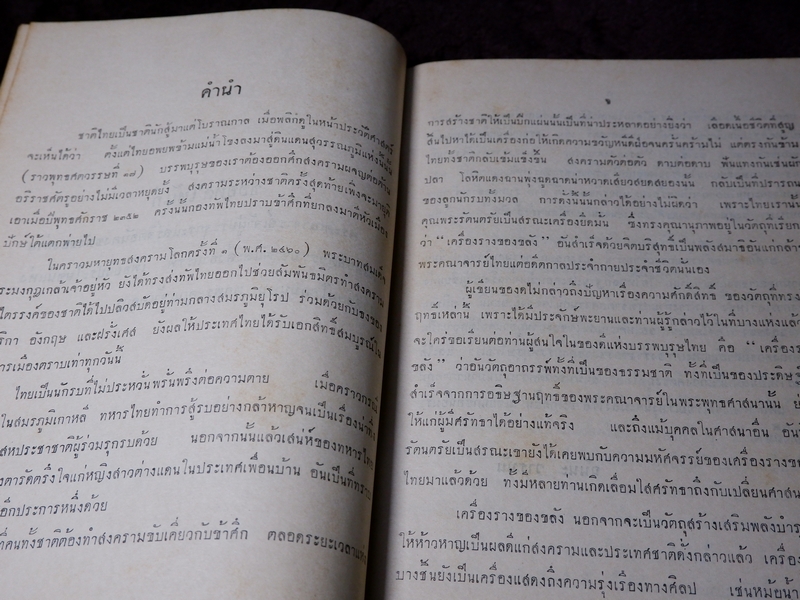 คำนำ
ชาติไทยเป็นชาตินักสู้มาแต่โบราณกาล เมื่อพลิกดูในหน้าประวัติศาสตร์
จะเห็นได้ว่า ตั้งแต่ไทยอพยพข้ามแม่น้ำโขงลงมาสู่ดินแดนสุวรรณภูมิแห่งนี้นั้น
(ราวพุทธศตวรรษที่ ๑๗) บรรพบุรุษของเราต้องออกศึกสงครามผจญต่อต้าน
อริราชศัตรูอย่างไม่มีเวลาหยุดยั้ง สงครามระหว่างชาติครั้งสุดท้ายเพิ่งจะมายุติ
เอาเมื่อปีพุทธศักราช ๒๔๕๒ ครั้งนั้นกองทัพไทยปราบข้าศึกที่ยกลงมาตีหัวเมือง
ปักษ์ใต้แตกพ่ายไป
ในคราวมหายุทธสงครามโลกครั้งที่ ๑ (พ.ศ. ๒๔๖๐) พระบาทสมเด็จ
ระมงกุฎเกล้าเจ้าอยู่หัว ยังได้ทรงส่งทัพไทยออกไปช่วยสัมพันธมิตรทำสงคราม
ไตรรงค์ของชาติได้ไปปลิวสบัดอยู่ท่ามกลางสมรภูมิยุโรป ร่วมด้วยกับธงของ
ริกา อังกฤษ และฝรั่งเศส ยังผลให้ประเทศไทยได้รับเอกสิทธิ์สมบูรณ์ใน
การเมืองตราบเท่าทุกวันนี้
ไทยเป็นนักรบที่ไม่ประหวั่นพรั่นพรึงต่อความตาย เมื่อคราวกรณี
ในสมรภูมิเกาหลี ทหารไทยทำการสู้รบอย่างกล้าหาญจนเป็นเรื่องน่าทึ่ง
สหประชาชาติผู้ร่วมรุกรบด้วย นอกจากนั้นแล้วเสน่ห์ของทหารไทย
ตารัดตรึงใจแก่หญิงสาวต่างแดนในประเทศเพื่อนบ้าน อันเป็นที่ทราบ
อีกประการหนึ่งด้วย
ที่คนทั้งชาติต้องทำสงครามขับเคี่ยวกับข้าศึก ตลอดระยะเวลาแห่ง
การสร้างชาติให้เป็นปึกแผ่นนั้นเป็นที่น่าประหลาดอย่างยิ่งว่า เลือดเนื้อชีวิตที่สูญ
สิ้นไปหาได้เป็นเครื่องก่อให้เกิดความขวัญหนีดีฝ่อจนครั่นคร้ามไม่ แต่ตรงกันข้าม
ไทยทั้งชาติกลับเข้มแข็งขึ้น สงครามตัวต่อตัว ดาบต่อดาบ ฟันแทงกันเช่นผัก
ปลา โลหิตแดงฉานพุ่งฉูดฉาดน่าหวาดเสียวสยดสยองนั้น กลับเป็นที่ปรารถนา
ของลูกนักรบทั้งมวล การดั่งนั้นกล่าวได้อย่างไม่ผิดว่า เพราะไทยเรานั้น
คุณพระรัตนตรัยเป็นสรณะเครื่องยึดมั่น ซึ่งทรงคุณานุภาพอยู่ในวัตถุที่เรียก
ว่า "เครื่องรางของขลัง" อันสำเร็จด้วยจิตบริสุทธิ์เป็นพลังสมาธิอันแก่กล้า
พระคณาจารย์ไทยแต่อดีตกาลประจำกายประจำชีวิตนั่นเอง
ผู้เขียนของดไม่กล่าวถึงปัญหาเรื่องความศักดิ์สิทธิ์ ของวัตถุที่ทรง
ฤทธิ์เหล่านี้ เพราะได้มีประจักษ์พะยานและท่านผู้รู้กล่าวไว้ในที่บางแห่งแล้ว
จะใคร่ขอเรียนต่อท่านผู้สนใจในของดีแห่งบรรพบุรุษไทย คือ "เครื่องร
ขลัง" ว่าอันวัตถุอาถรรพ์ทั้งที่เป็นของธรรมชาติ ทั้งที่เป็นของประดิษฐ์
สำเร็จจากการอธิษฐานฤทธิ์ของพระคณาจารย์ในพระพุทธศาสนานั้น
ให้แก่ผู้มีศรัทธาได้อย่างแท้จริง และถึงแม้บุคคลในศาสนาอื่น อัน
รัตนตรัยเป็นสรณะเขายังได้เคยพบกับความมหัศจรรย์ของเครื่องรางขอ
ไทยมาแล้วด้วย ทั้งมีหลายท่านเกิดเลื่อมใสศรัทธาถึงกับเปลี่ยนศาสน
เครื่องรางของขลัง นอกจากจะเป็นวัตถุสร้างเสริมพลังบำรุ
ให้ห้าวหาญเป็นผลดีแก่สงครามและประเทศชาติดั่งกล่าวแล้ว เครื่อง
บางชิ้นยังเป็นเครื่องแสดงถึงความรุ่งเรืองทางศิลป เช่นหม้อน้ำ